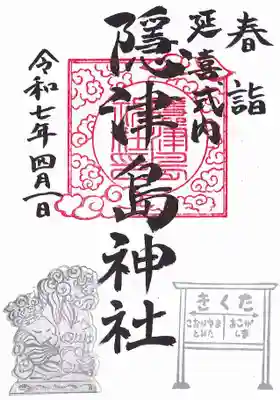 春詣
延喜式内
隠津島神社
令和七年四月一日
きくた
こおりやまとみた
あこがしま